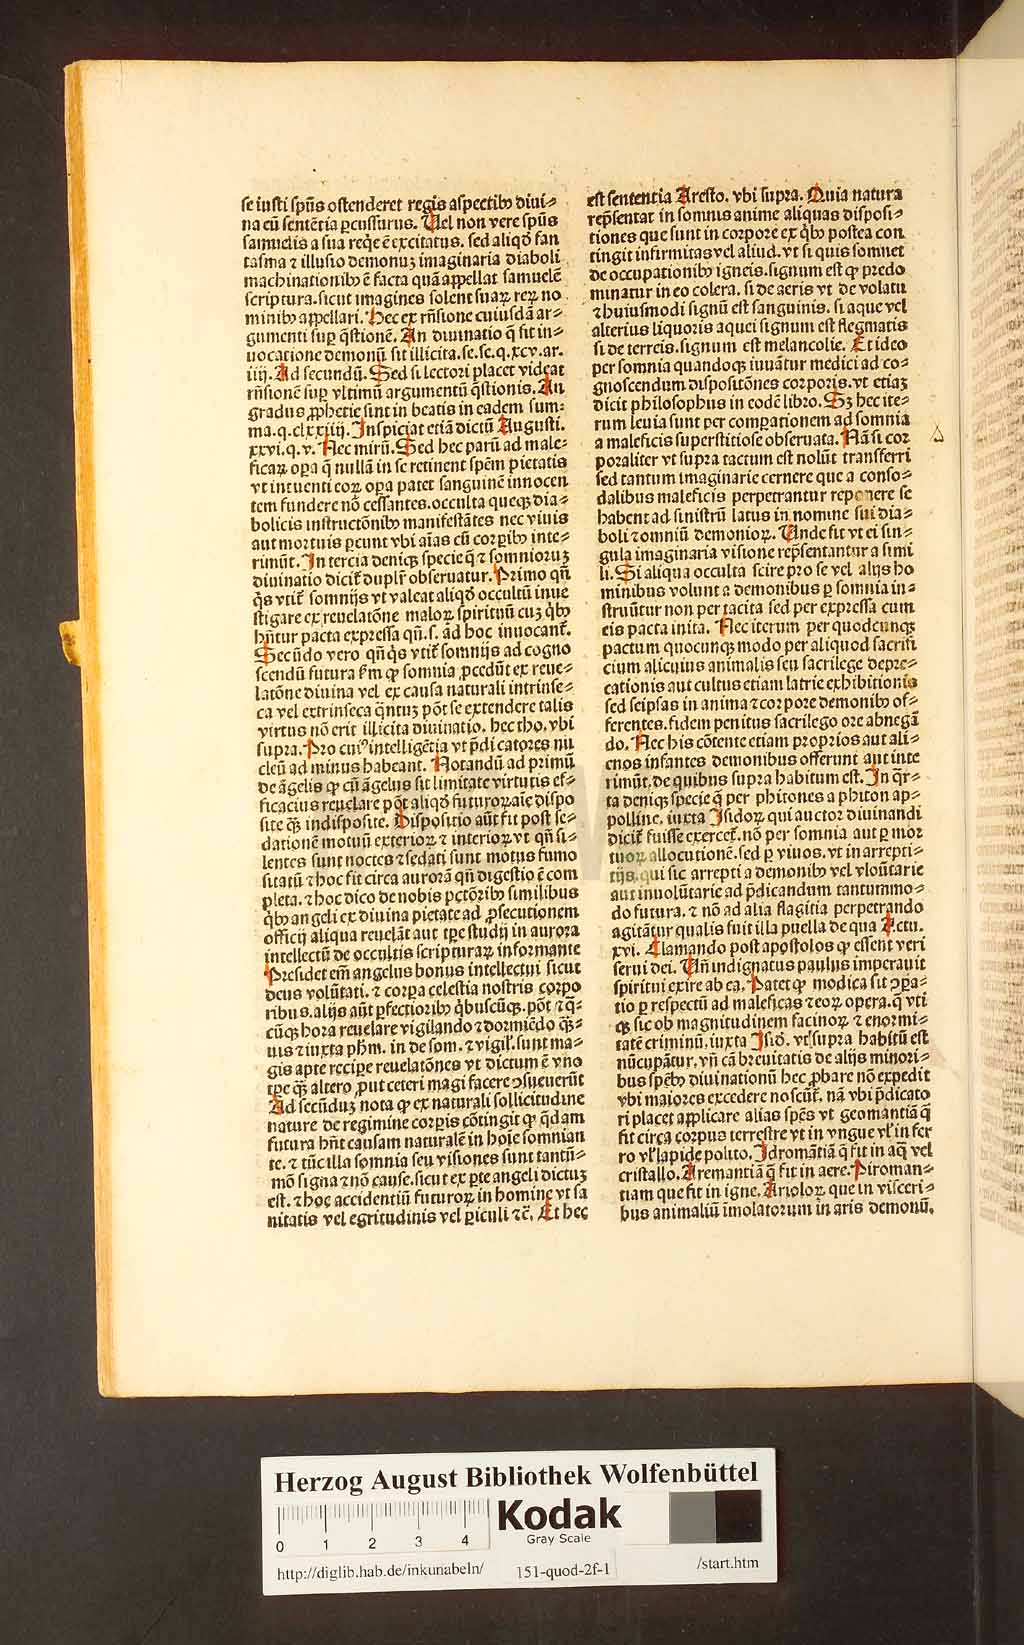 se iusti spūs ostenderet regis aspectibꝫ diui⸗
na cū sentētia ꝑcussurus. Uel non vere spūs
samuelis a sua reqͥe ē excitatus. sed aliqd̄ fan
tasma ⁊ illusio demonuꝫ imaginaria diaboli
machinationibꝫ ē facta quā appellat samuelē
scriptura. sicut imagines solent suaꝝ reꝝ no
minibꝫ appellari. Hec ex rn̄sione cuiusdā ar⸗
gumenti suꝑ q̄stionē. An diuinatio q̄ fit in⸗
uocatione demonū sit illicita. se. se. q. xcv. ar.
iiij. Ad secundū. Sed si lectori placet videat
rn̄sionē suꝑ vltimū argumentū q̄stionis. An
gradus ꝓphetie sint in beatis in eadem sum⸗
ma. q. clxxiiij. Inspiciat etiā dictū Augusti.
xxvi. q. v. Nec mirū. Sed hec parū ad male⸗
ficaꝝ oꝑa q̄ nullā in se retinent spēm pietatis
vt intuenti eoꝝ oꝑa patet sanguinē innocen
tem fundere nō cessantes. occulta queqꝫ dia⸗
bolicis instructōnibꝫ manifestātes nec viuis
aut mortuis ꝑcunt vbi aīas cū corꝑibꝫ inte⸗
rimūt. In tercia deniqꝫ specie q̄ ⁊ somnioruꝫ
diuinatio dicit᷑ dupl̄r obseruatur. Primo qn̄
q̄s vtit᷑ somnijs vt valeat aliqd̄ occultū inue
stigare ex reuelatōne maloꝝ spirituū cuꝫ q̄bꝫ
hn̄tur pacta expressa qn̄. s. ad hoc inuocant᷑.
Secūdo vero qn̄ q̄s vtit᷑ somnijs ad cogno
scendū futura ẜm ꝙ somnia ꝓcedūt ex reue⸗
latōne diuina vel ex causa naturali intrinse⸗
ca vel extrinseca q̄ntuꝫ pōt se extendere talis
virtus nō erit illicita diuinatio. hec tho. vbi
supra. Pro cuiꝰ intelligētia vt p̄dicatores nu
cleū ad minus habeant. Notandū ad primū
de āgelis ꝙ cū āgelus sit limitate virtutis ef⸗
ficacius reuelare pōt aliqd̄ futuroꝝ aīe dispo
site q̄ꝫ indisposite. Dispositio aūt fit post se⸗
dationē motuū exterioꝝ ⁊ interioꝝ vt qn̄ si⸗
lentes sunt noctes ⁊ sedati sunt motus fumo
sitatū ⁊ hoc fit circa aurorā qn̄ digestio ē com
pleta. ⁊ hoc dico de nobis pctōribꝫ similibus
q̄bꝫ angeli ex diuina pietate ad ꝓsecutionem
officij aliqua reuelāt aut tꝑe studij in aurora
intellectū de occultis scripturaꝝ informante
Presidet em̄ angelus bonus intellectui sicut
deus volūtati. ⁊ corꝑa celestia nostris corpo
ribus. alijs aūt ꝑfectioribꝫ q̄buscūqꝫ. pōt ⁊ q̄⸗
cūqꝫ hora reuelare vigilando ⁊ dormiēdo q̄ꝫ⸗
uis ⁊ iuxta ph̄m. in de som. ⁊ vigil᷑. sunt ma⸗
gis apte recipe reuelatōnes vt dictum ē vno
tꝑe q̄ꝫ altero ꝓut ceteri magi facere ↄsueuerūt
Ad secūduꝫ nota ꝙ ex naturali sollicitudine
nature de regimine corꝑis cōtingit ꝙ q̄dam
futura hn̄t causam naturalē in hoīe somnian
te. ⁊ tūc illa somnia seu visiones sunt tantū⸗
mō signa ⁊ nō cause. sicut ex ꝑte angeli dictuꝫ
est. ⁊ hoc accidentiū futuroꝝ in homine vt sa
nitatis vel egritudinis vel ꝑiculi ⁊c̄. Et hec
est sententia Aresto. vbi supra. Quia natura
rep̄sentat in somnis anime aliquas disposi⸗
tiones que sunt in corpore ex q̄bꝫ postea con
tingit infirmitas vel aliud. vt si quis somnet
de occupationibꝫ igneis. signum est ꝙ predo
minatur in eo colera. si de aeris vt de volatu
⁊ huiusmodi signū est sanguinis. si aque vel
alterius liquoris aquei signum est flegmatis
si de terreis. signum est melancolie. Et ideo
per somnia quandoqꝫ iuuātur medici ad co⸗
gnoscendum dispositōnes corporis. vt etiaꝫ
dicit philosophus in eodē libro. Sꝫ hec ite⸗
rum leuia sunt per comꝑationem ad somnia
a maleficis superstitiose obseruata. Nā si cor
poraliter vt supra tactum est nolūt transferri
sed tantum imaginarie cernere que a conso⸗
dalibus maleficis perpetrantur reponere se
habent ad sinistrū latus in nomine sui dia⸗
boli ⁊ omniū demonioꝝ. Unde fit vt ei sin⸗
gula imaginaria visione rep̄sentantur a simi
li. Si aliqua occulta scire pro se vel alijs ho
minibus volunt a demonibus ꝑ somnia in⸗
struūtur non per tacita sed per expressa cum
eis pacta inita. Nec iterum per quodcunqꝫ
pactum quocunqꝫ modo per aliquod sacrifi
cium alicuius animalis seu sacrilege depre⸗
cationis aut cultus etiam latrie exhibitionis
sed seipsas in anima ⁊ corpore demonibꝫ of⸗
ferentes. fidem penitus sacrilego ore abnegā
do. Nec his cōtente etiam proprios aut ali⸗
enos infantes demonibus offerunt aut inte
rimūt. de quibus supra habitum est. In q̄r⸗
ta deniqꝫ specie q̄ per phitones a phiton ap⸗
polline. iuxta Isidoꝝ qui auctor diuinandi
dicit᷑ fuisse exercet᷑. nō per somnia aut ꝑ mor
tuoꝝ allocutionē. sed ꝑ viuos. vt in arrepti⸗
tijs. qui sic arrepti a demonibꝫ vel vlōūtarie
aut inuolūtarie ad p̄dicandum tantummo⸗
do futura. ⁊ nō ad alia flagitia perpetrando
agitātur qualis fuit illa puella de qua Actu.
xvi. Clamando post apostolos ꝙ essent veri
serui dei. Un̄ indignatus paulus imperauit
spiritui exire ab ea. Patet ꝙ modica sit ↄꝑa⸗
tio ꝑ respectū ad maleficas ⁊ eoꝝ opera. q̄ vti
qꝫ sic ob magnitudinem facinoꝝ ⁊ enormi⸗
tatē criminū. iuxta Isid̄. vt supra habitū est
nūcupātur. vn̄ cā breuitatis de alijs minori⸗
bus spēbꝫ diuinationū hec ꝓbare nō expedit
vbi maiores excedere noscūt᷑. nā vbi p̄dicato
ri placet applicare alias spēs vt geomantiā q̄
fit circa corpus terrestre vt in vngue vl᷑ in fer
ro vl᷑ lapide polito. Idromātiā q̄ fit in aq̄ vel
cristallo. Aremantiā q̄ fit in aere. Piroman⸗
tiam que fit in igne. Arioloꝝ que in visceri⸗
bus animaliū īmolatorum in aris demonū.
Herzog August Bibliothek Wolfenbüttel
0 1 2 3 4
Kodak
Gray Scale
http://diglib.hab.de/inkunabeln/
151-quod-2f-1
/start.htm